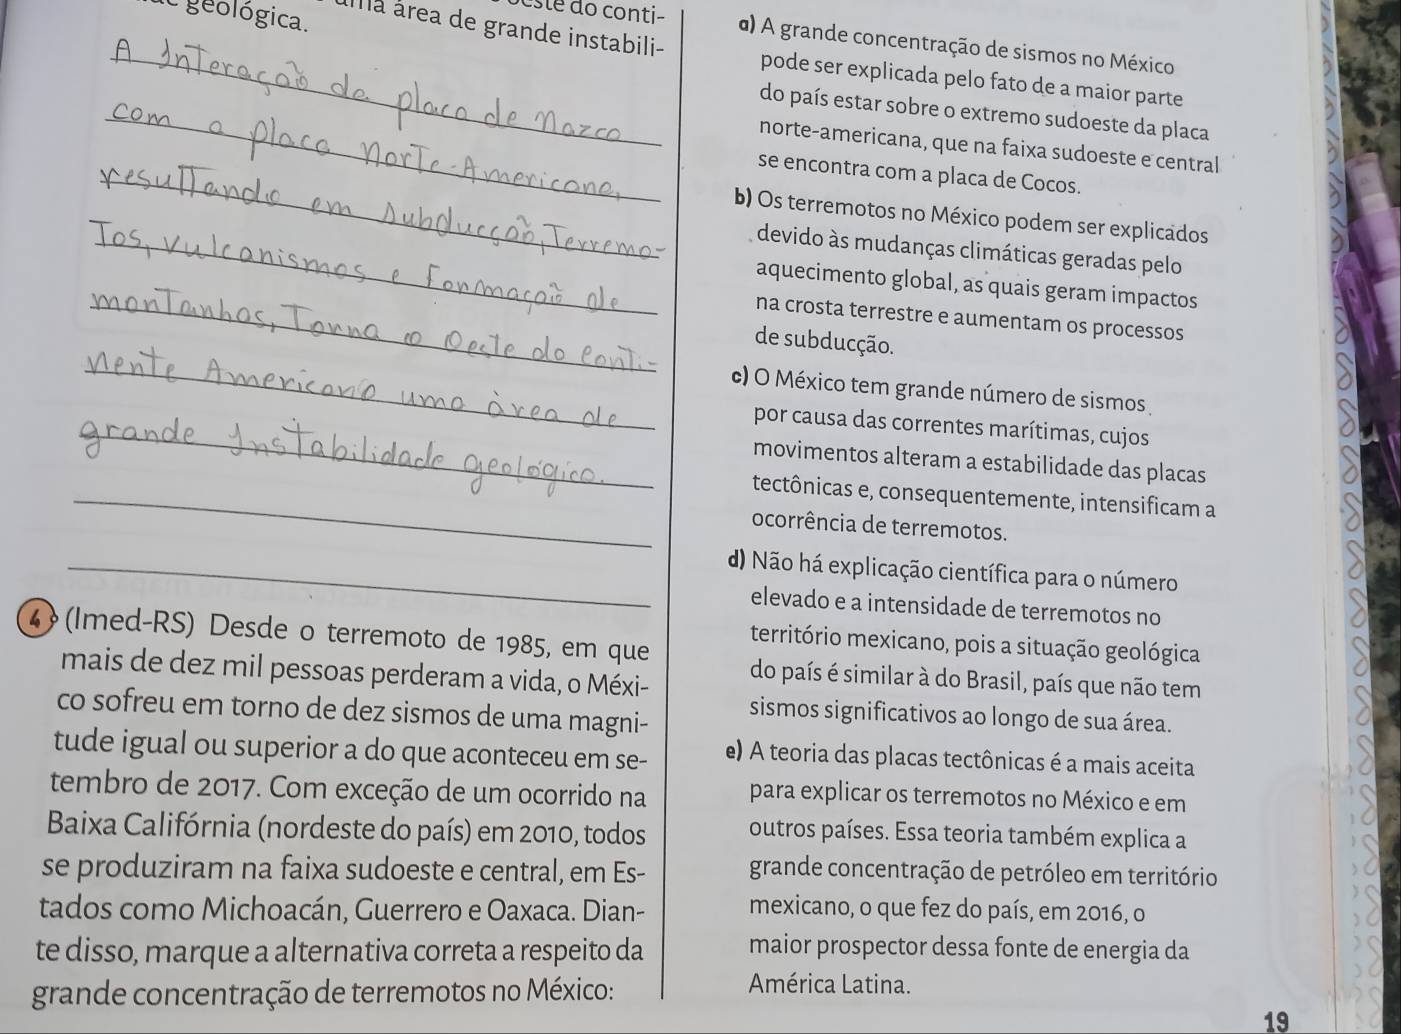 geológica.
uma área de grande instabili-
A Interação da placa de Nazca
com a placa Norte-Americana,
resultando em subducção, Terremo-
Tos, vulcanismos e Formação de
montanhas, Torna o Oeste do conti-
nente Americano uma área de
grande Instabilidade geológica.
4 (Imed-RS) Desde o terremoto de 1985, em que
mais de dez mil pessoas perderam a vida, o Méxi-
co sofreu em torno de dez sismos de uma magni-
tude igual ou superior a do que aconteceu em se-
tembro de 2017. Com exceção de um ocorrido na
Baixa Califórnia (nordeste do país) em 2010, todos
se produziram na faixa sudoeste e central, em Es-
tados como Michoacán, Guerrero e Oaxaca. Dian-
te disso, marque a alternativa correta a respeito da
grande concentração de terremotos no México:
a) A grande concentração de sismos no México
pode ser explicada pelo fato de a maior parte
do país estar sobre o extremo sudoeste da placa
norte-americana, que na faixa sudoeste e central
se encontra com a placa de Cocos.
b) Os terremotos no México podem ser explicados
devido às mudanças climáticas geradas pelo
aquecimento global, as quais geram impactos
na crosta terrestre e aumentam os processos
de subducção.
c) O México tem grande número de sismos
por causa das correntes marítimas, cujos
movimentos alteram a estabilidade das placas
tectônicas e, consequentemente, intensificam a
ocorrência de terremotos.
d) Não há explicação científica para o número
elevado e a intensidade de terremotos no
território mexicano, pois a situação geológica
do país é similar à do Brasil, país que não tem
sismos significativos ao longo de sua área.
e) A teoria das placas tectônicas é a mais aceita
para explicar os terremotos no México e em
outros países. Essa teoria também explica a
grande concentração de petróleo em território
mexicano, o que fez do país, em 2016, o
maior prospector dessa fonte de energia da
América Latina.
19